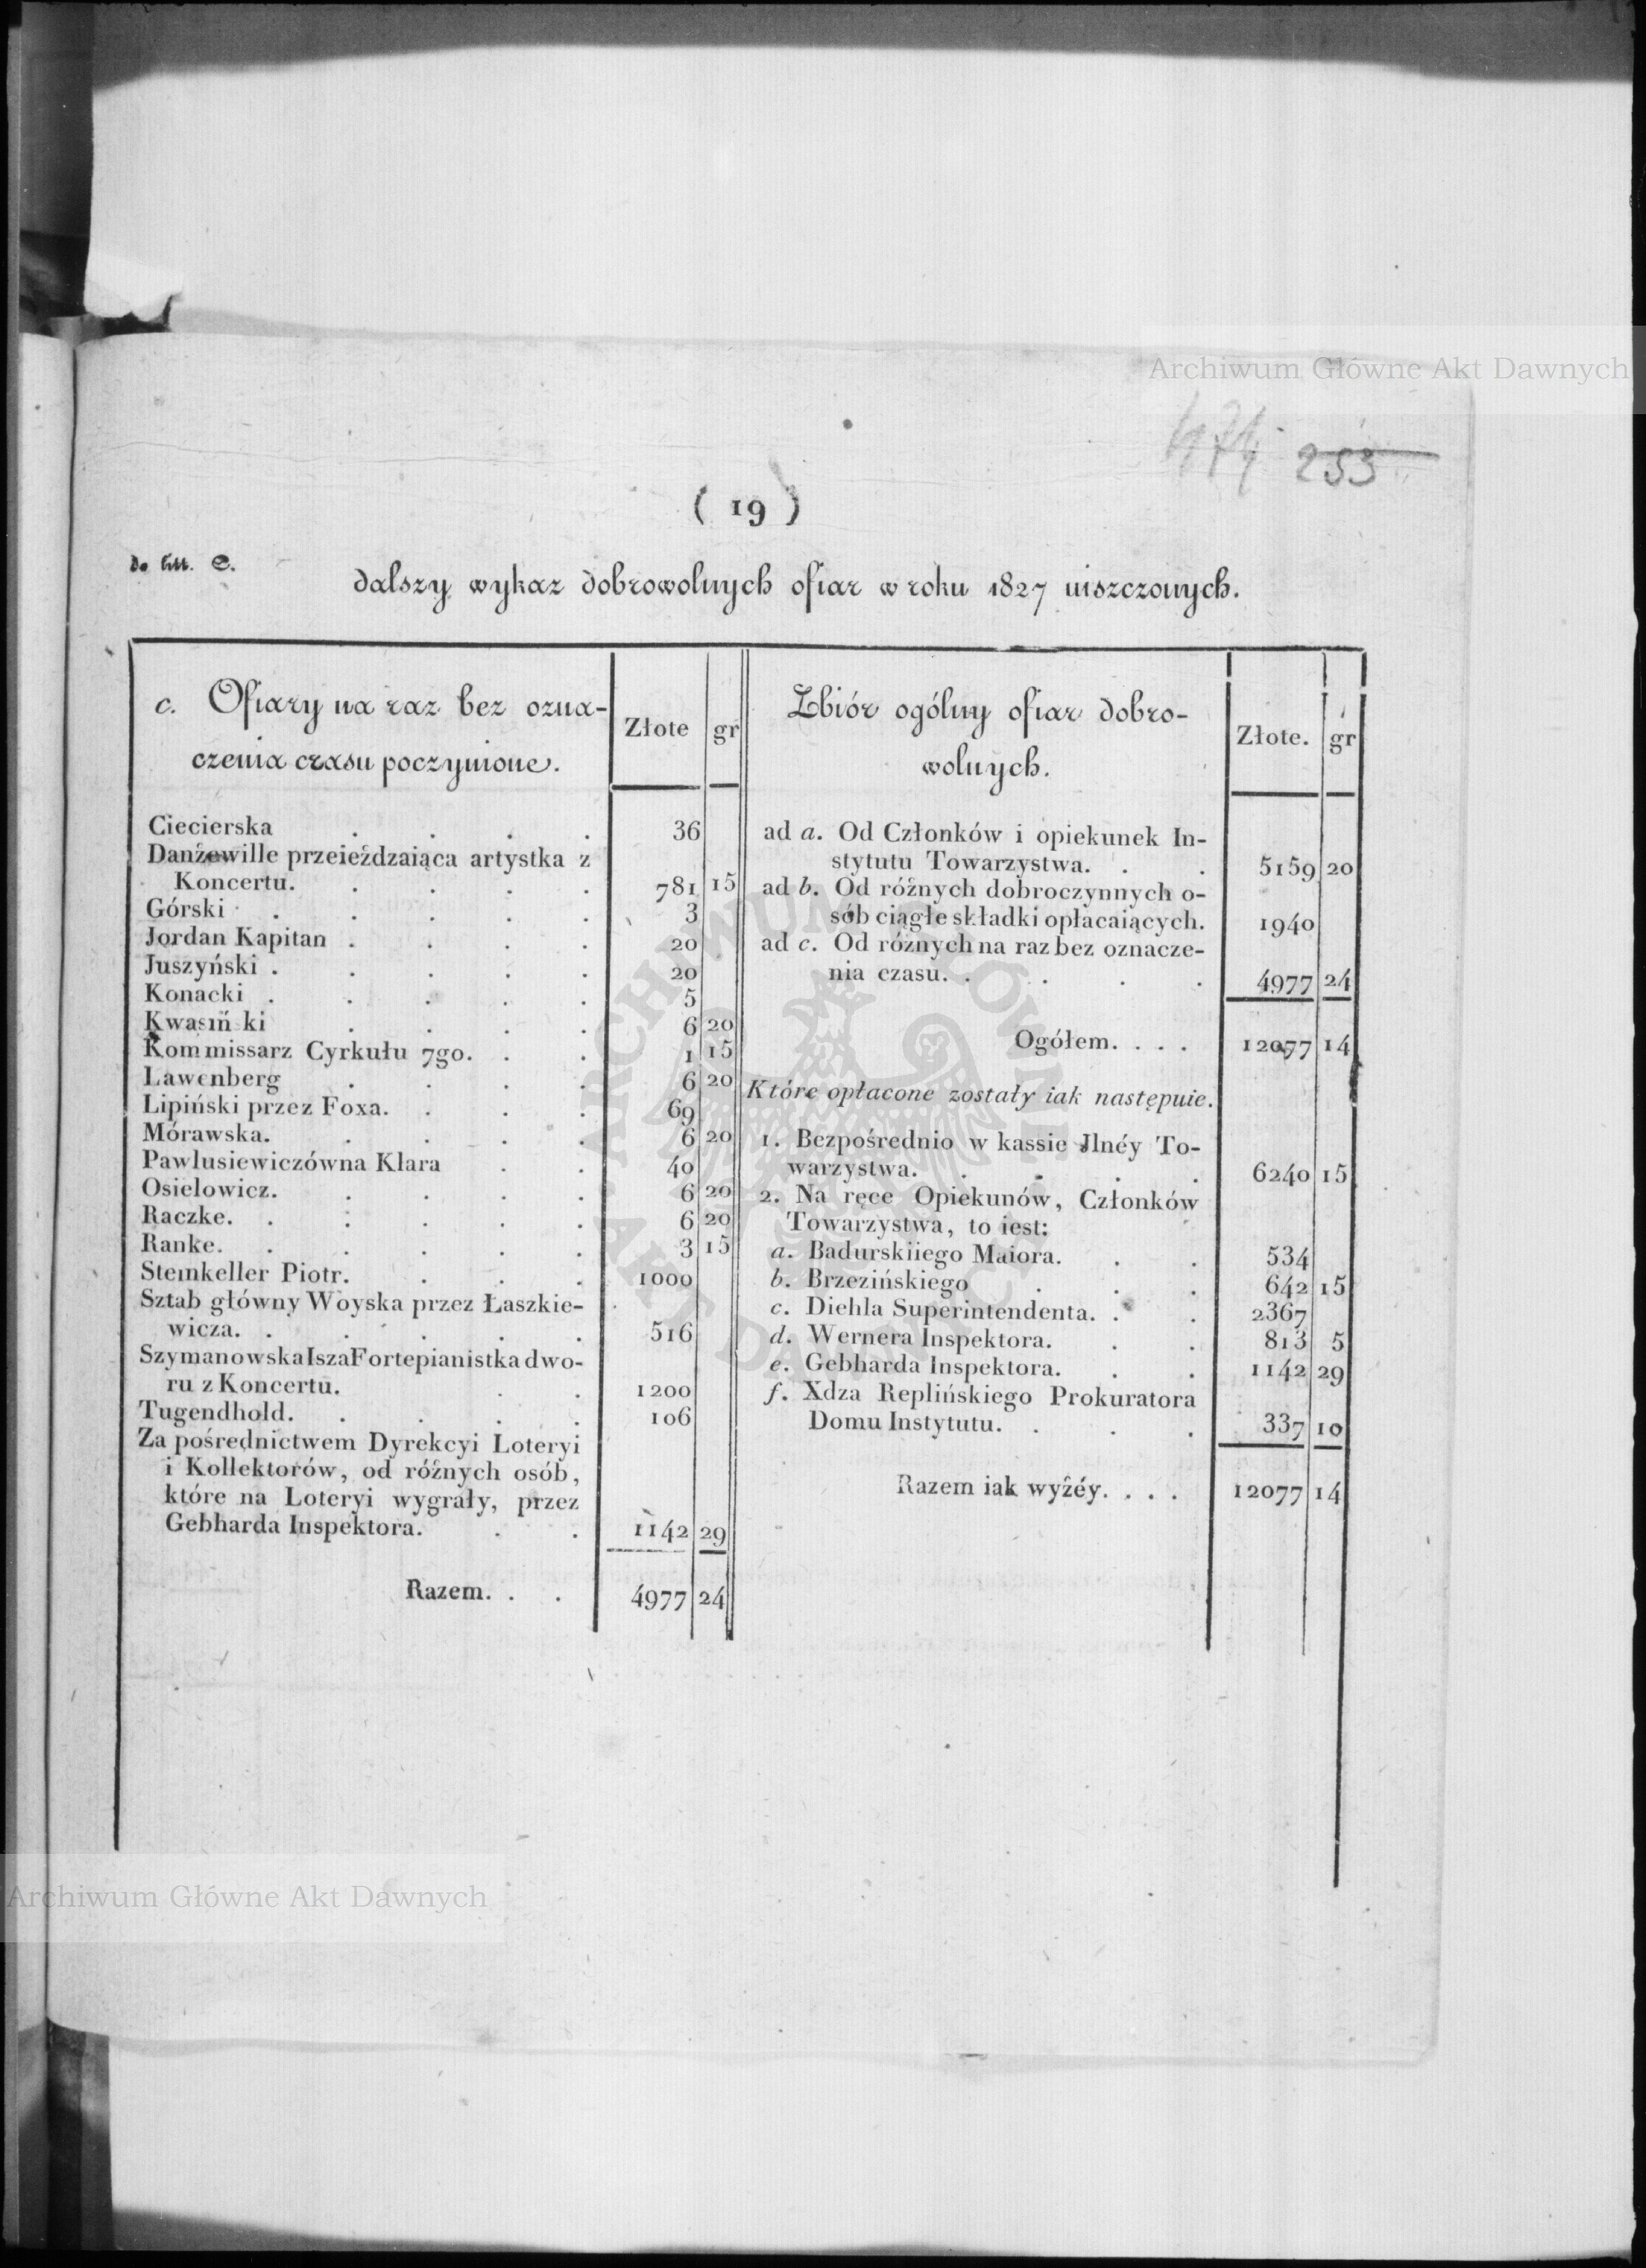 Archiwum Główne Akt Dawnych
253
( 19 )
do litt. C.
dalszy wykaz dobrowolnych ofiar w roku 1827 uiszczonych.
c. Ofiary na raz bez ozna-
czenia czasu poczynione.
Złote gr
Ciecierska . . . . 36
Danżewille przeieżdzaiąca artystka z
Koncertu. . . . . 781 15
Górski . . . . . 3
Jordan Kapitan . . . . 20
Juszyński . . . . . 20
Konacki . . . . . 5
Kwasiń ki . . . . 6 20
Kommissarz Cyrkułu 7go. . . 1 15
Lawenberg . . . . 6 20
Lipiński przez Foxa. . . . 69
Mórawska. . . . . 6 20
Pawlusiewiczówna Klara . . 40
Osielowicz. . . . . 6 20
Raczke. . . . . . 6 20
Ranke. . . . . . 3 15
Steinkeller Piotr. . . . 1000
Sztab główny Woyska przez Łaszkie-
wicza. . . . . . 516
Szymanowska IszaFortepianistka dwo-
ru z Koncertu. . . 1200
Tugendhold. . . . . 106
Za pośrednictwem Dyrekcyi Loteryi
i Kollektorów, od różnych osób,
które na Loteryi wygrały, przez
Gebharda Inspektora. . . 1142 29
Razem. . . 4977 24
Zbiór ogólny ofiar dobro-
wolnych.
Złote. gr
ad a. Od Członków i opiekunek In-
stytutu Towarzystwa. . . 5159 20
ad b. Od różnych dobroczynnych o-
sób ciągłe składki opłacaiących. 1940
ad c. Od różnych na raz bez oznacze-
nia czasu. . . . . 4977 24
Ogółem. . . . 12077 14
Które opłacone zostały iak następuie.
1. Bezpośrednio w kassie Jlnéy To-
warzystwa. . . . . 6240 15
2. Na ręce Opiekunów, Członków
Towarzystwa, to iest:
a. Badurskiiego Maiora. . . 534
b. Brzezińskiego . . . 642 15
c. Diehla Superintendenta. . . 2367
d. Wernera Inspektora. . . 813 5
e. Gebharda Inspektora. . . 1142 29
f. Xdza Replińskiego Prokuratora
Domu Instytutu. . . . 337 10
Razem iak wyżéy. . . . 12077 14
ARCHIWUM GŁÓWNE
AKT DAWNYCH
Archiwum Główne Akt Dawnych